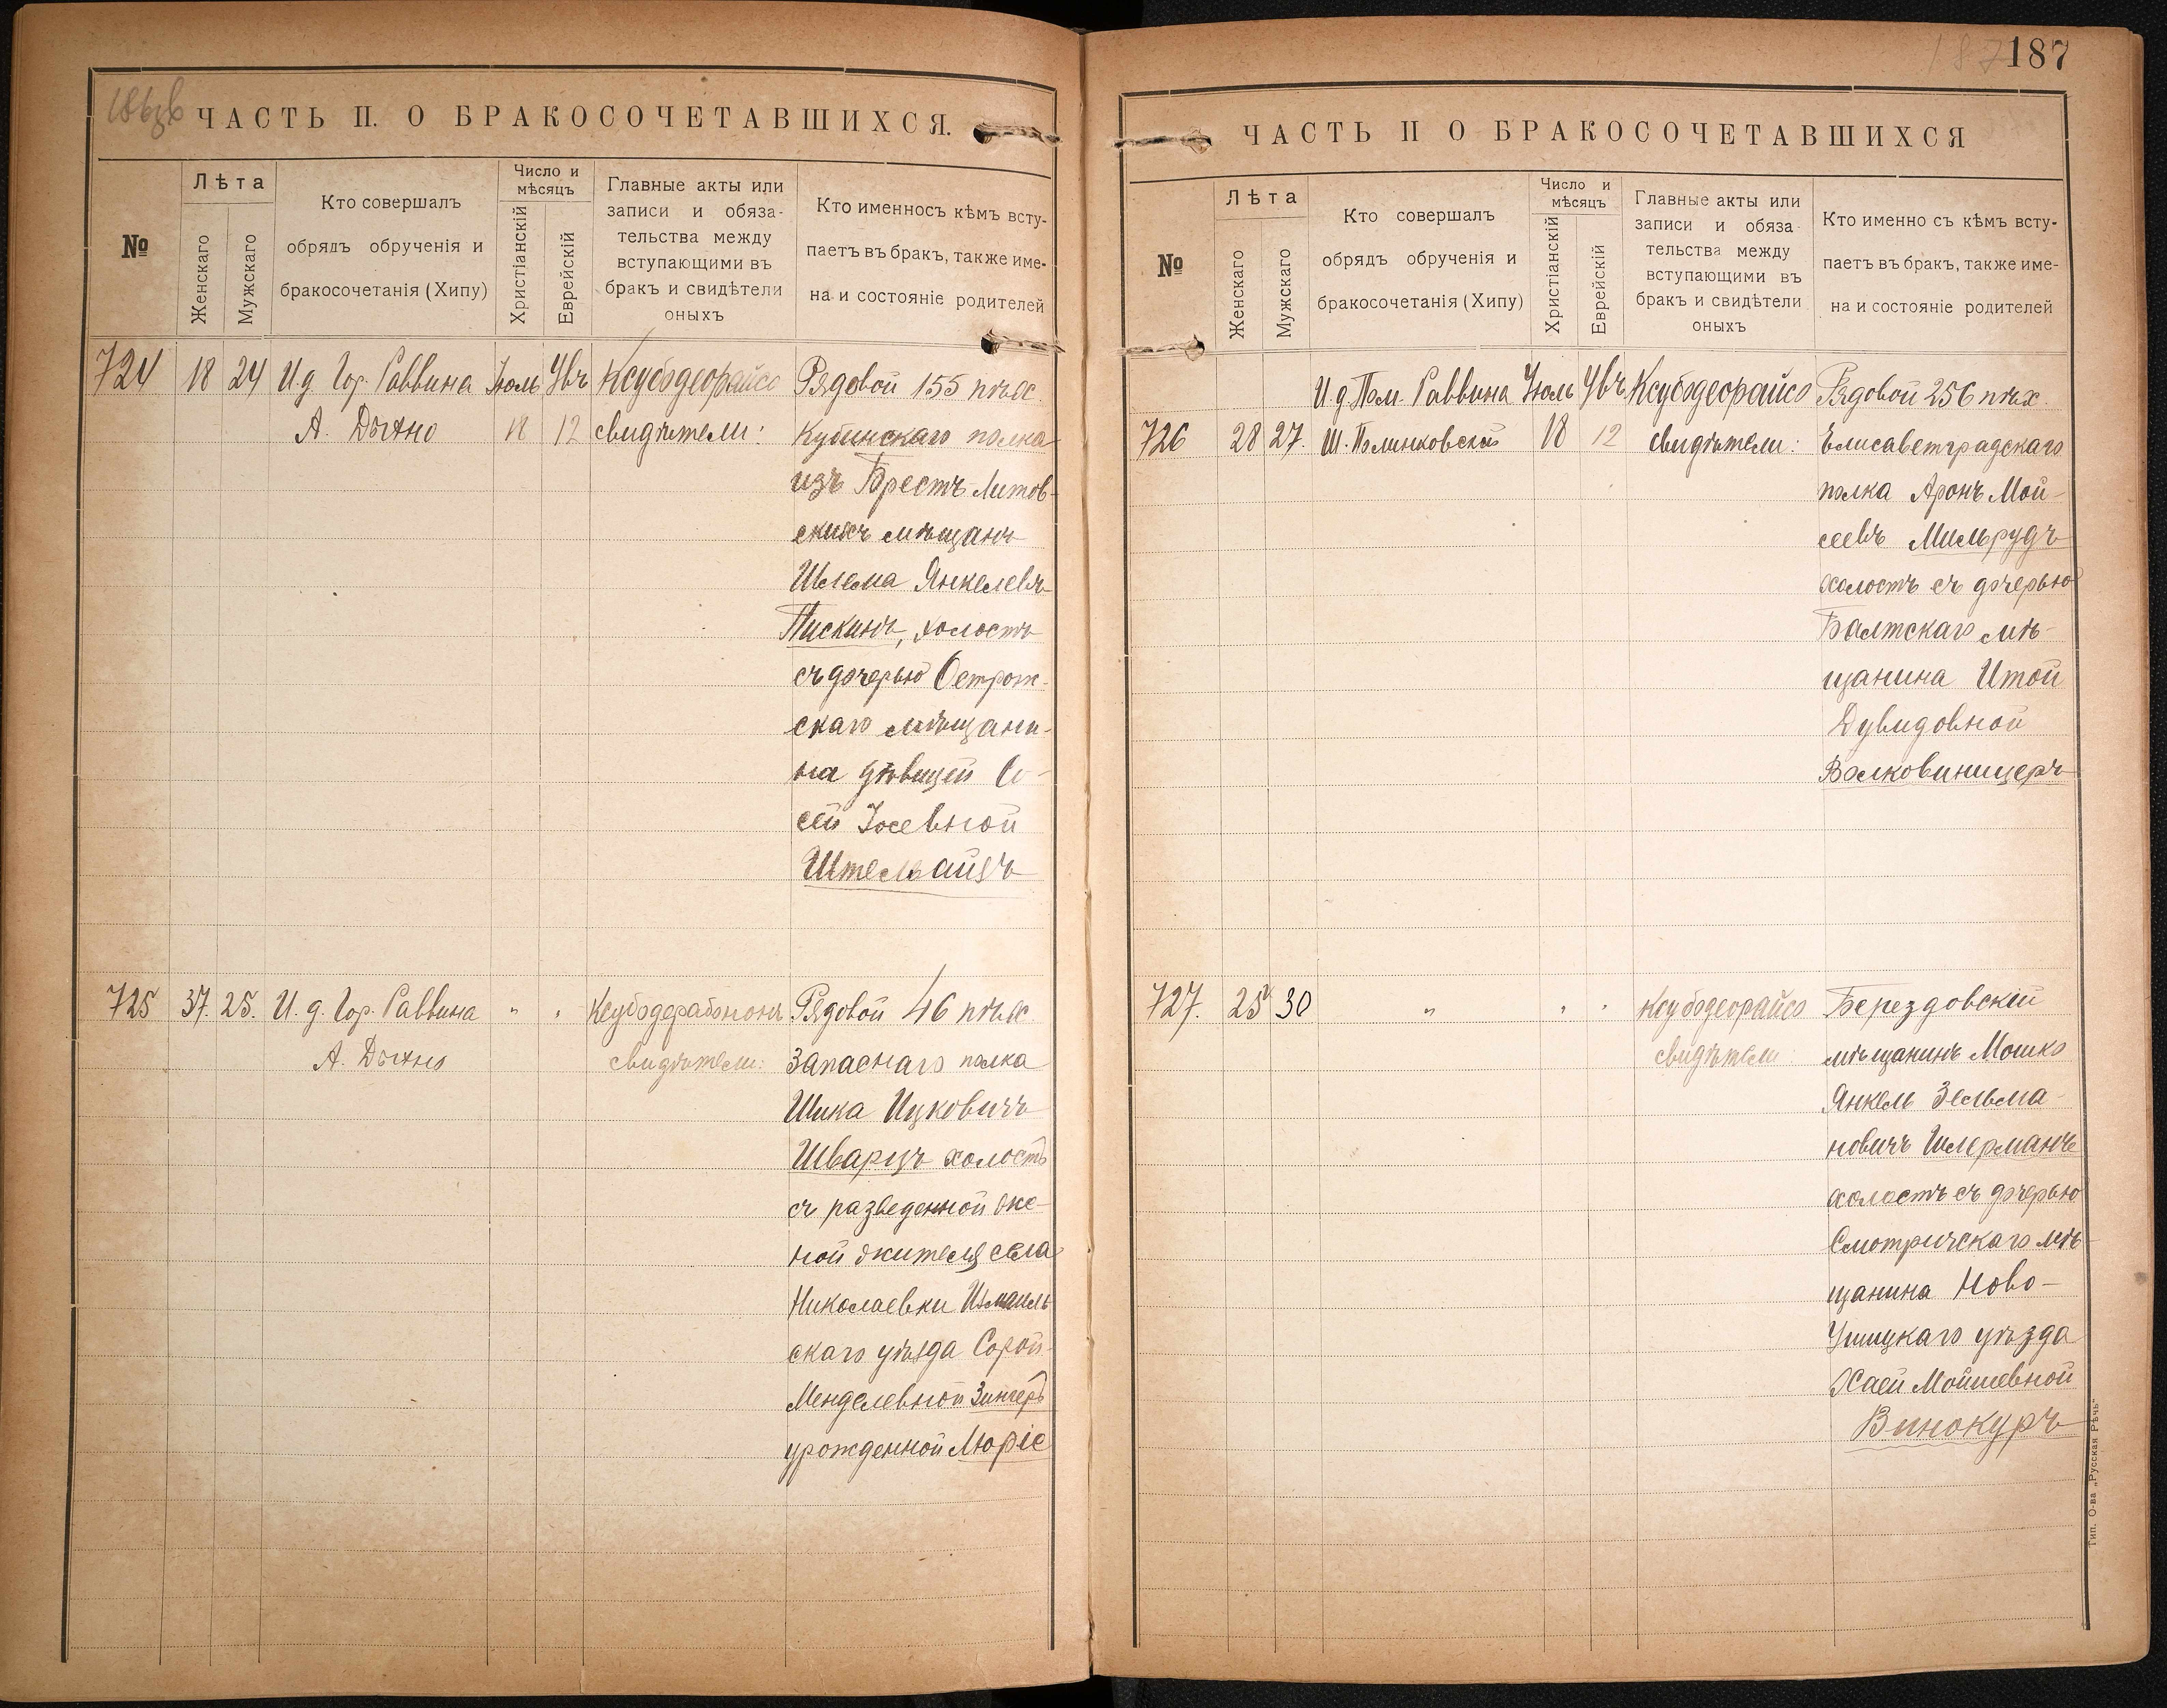 186 об
ЧАСТЬ II. О БРАКОСОЧЕТАВШИХСЯ.
№
Лѣта
Женскаго
Мужскаго
Кто совершалъ
обрядъ обрученія и
бракосочетанія (Хипу)
Число и
мѣсяцъ
Христіанскій
Еврейскій
Главные акты или
записи и обяза-
тельства между
вступающими въ
бракъ и свидѣтели
оныхъ
Кто именносъ кѣмъ всту-
паетъ въ бракъ, также име-
на и состояніе родителей
724 18 24 И.д. Гор. Раввина Іюль Увъ Ксубодеорайсо Рядовой 155 пѣх.
А. Дыхно 18 12 свидѣтели: Кубинскаго полка
изъ Брестъ-Литов-
скихъ мѣщанъ
Шлема Янкелевъ
Пискинъ, холостъ
съ дочерью Острож-
скаго мѣщани-
на дѣвицей Со-
сей Іосевной
Штельвайзъ
725 37. 25. И. д. Гор. Раввина " " Ксубодерабонон Рядовой 46 пѣх.
А. Дыхно свидѣтели: Запаснаго полка
Шика Ицковичъ
Шварцъ холостъ
съ разведенной же-
ной жителя села
Николаевки Измаиль
скаго уѣзда Сорой
Менделевной Зингеръ
урожденной Люріе
187
187
ЧАСТЬ II О БРАКОСОЧЕТАВШИХСЯ
№
Лѣта
Женскаго
Мужскаго
Кто совершалъ
обрядъ обрученія и
бракосочетанія (Хипу)
Число и
мѣсяцъ
Христіанскій
Еврейскій
Главные акты или
записи и обяза-
тельства между
вступающими въ
бракъ и свидѣтели
оныхъ
Кто именно съ кѣмъ всту-
паетъ въ бракъ, также име-
на и состояніе родителей
И.д. Пом. Раввина Іюль Увъ Ксубодеорайсо Рядовой 256 пѣх.
726 28 27. Ш. Полинковскій 18 12 свидѣтели: Елисаветградскаго
полка Аронъ Мой-
сеевъ Мильрудъ
холостъ съ дочерью
Балтскаго мѣ-
щанина Итой
Дувидовной
Волковиницеръ
727. 25 30 " " " Ксубодеорайсо Берездовскій
свидѣтели: мѣщанинъ Мошко
Янкель Зельма-
новичъ Шлерманъ
холостъ съ дочерью
Смотричскаго мѣ-
щанина Ново-
Ушицкаго уѣзда
Хаей Мойшевной
Винокуръ
Тип. О-ва „Русская Рѣчь"